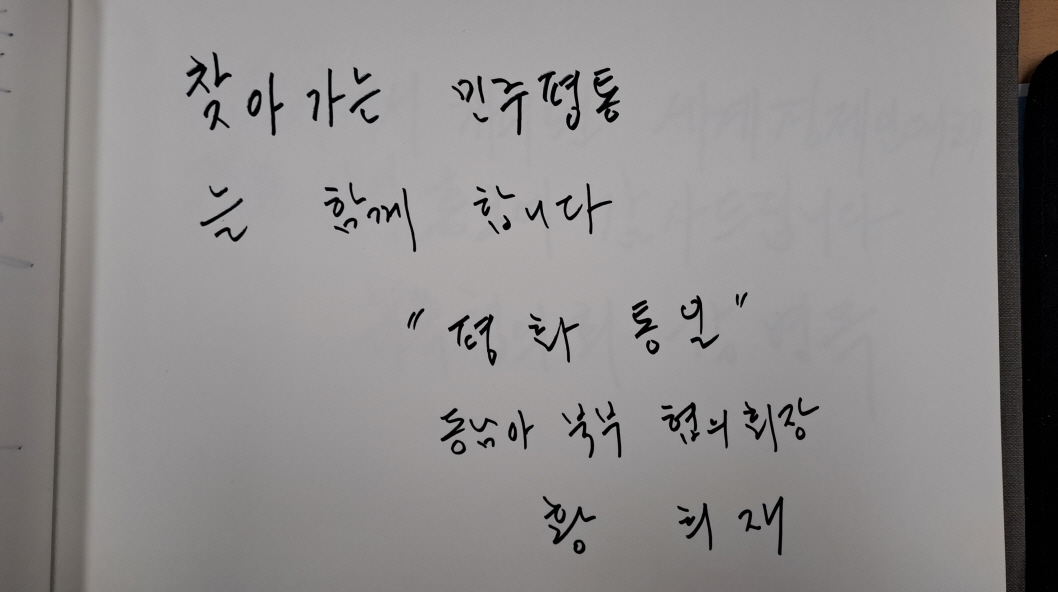 찾아가는 민주평통
는 함께 합니다
"평화 통일"
동남아 북부 협의회장
황 희재